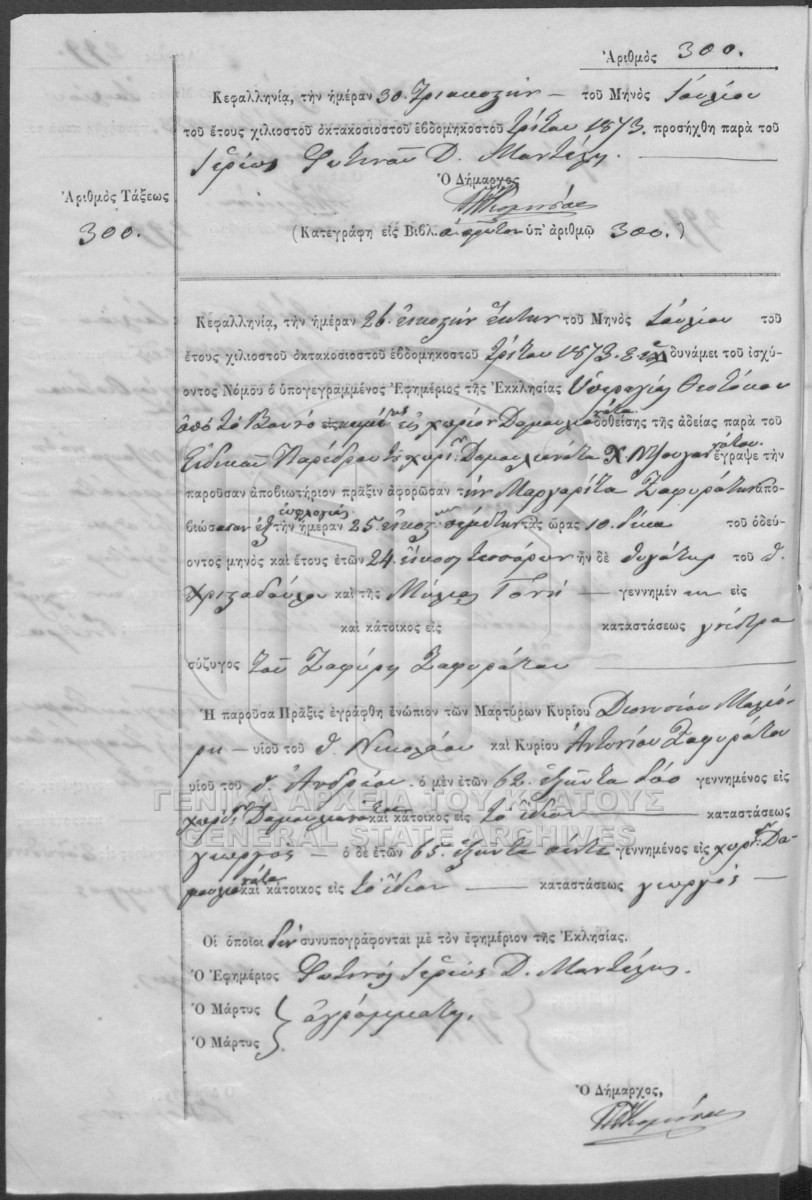 Ἀριθμὸς 300.
Κεφαλληνίᾳ, τὴν ἡμέραν 30. τριακοστὴν — τοῦ Μηνὸς Ἰουλίου
τοῦ ἔτους χιλιοστοῦ ὀκτακοσιοστοῦ ἑβδομηκοστοῦ τρίτου 1873. προσήχθη παρὰ τοῦ
Ἱερέως Φωτεινοῦ Δ. Μαντζάβη.
Ὁ Δήμαρχος
Ἀριθμὸς Τάξεως
300.
(Κατεγράφη εἰς Βιβλ. πρῶτον ὑπ' ἀριθμῷ 300.)
Κεφαλληνίᾳ, τὴν ἡμέραν 26. εἰκοστὴν ἕκτην τοῦ Μηνὸς Ἰουλίου τοῦ
ἔτους χιλιοστοῦ ὀκτακοσιοστοῦ ἑβδομηκοστοῦ τρίτου 1873. δυνάμει τοῦ ἰσχύ-
οντος Νόμου ὁ ὑπογεγραμμένος Ἐφημέριος τῆς Ἐκκλησίας Ὑπεραγίας Θεοτόκου
ἀπὸ τὸ Βουνὸ εἰς χωρίον Δαμουλιανάτα δοθείσης τῆς ἀδείας παρὰ τοῦ
Εἰδικοῦ Παρέδρου τοῦ χωρ: Δαμουλιανάτα Χ. ἔγραψε τὴν
παροῦσαν ἀποβιωτήριον πρᾶξιν ἀφορῶσαν τὴν Μαργαρίτα Ζαφυράτου ἀπο-
βιώσασαν ἐξ εὐφλογιᾶς τὴν ἡμέραν 25 εἰκοστὴν πέμπτην τὰς ὥρας 10. δέκα τοῦ ὁδεύ-
οντος μηνὸς καὶ ἔτους ἐτῶν 24. εἴκοσι τεσσάρων ἦν δὲ θυγάτηρ τοῦ π.
Χριστοδούλου καὶ τῆς Γονῆ — γεννημέν εἰς
καὶ κάτοικος εἰς καταστάσεως γνέστρα
σύζυγος τοῦ Ζαφύρη Ζαφυράτου
Ἡ παροῦσα Πρᾶξις ἐγράφθη ἐνώπιον τῶν Μαρτύρων Κυρίου Διονυσίου
— υἱοῦ τοῦ π. Νικολάου καὶ Κυρίου Ἀντωνίου Ζαφυράτου
υἱοῦ τοῦ π. Ἀνδρέου. ὁ μὲν ἐτῶν 62. ἑξῆντα δύο γεννημένος εἰς
χωρ: Δαμουλιανάτα καὶ κάτοικος εἰς τὸ ἴδιον — καταστάσεως
γεωργὸς — ὁ δὲ ἐτῶν 65. ἑξῆντα πέντε γεννημένος εἰς χωρ: Δα-
μουλιανάτα καὶ κάτοικος εἰς τὸ ἴδιον — καταστάσεως γεωργός —
Οἱ ὁποῖοι δὲν συνυπογράφονται μὲ τὸν ἐφημέριον τῆς Ἐκλησίας.
Ὁ Ἐφημέριος Φωτεινὸς Ἱερεὺς Δ. Μαντζάβης.
Ὁ Μάρτυς
Ὁ Μάρτυς
ἀγράμματοι.
Ὁ Δήμαρχος,
ΓΕΝΙΚΑ ΑΡΧΕΙΑ ΤΟΥ ΚΡΑΤΟΥΣ
GENERAL STATE ARCHIVES